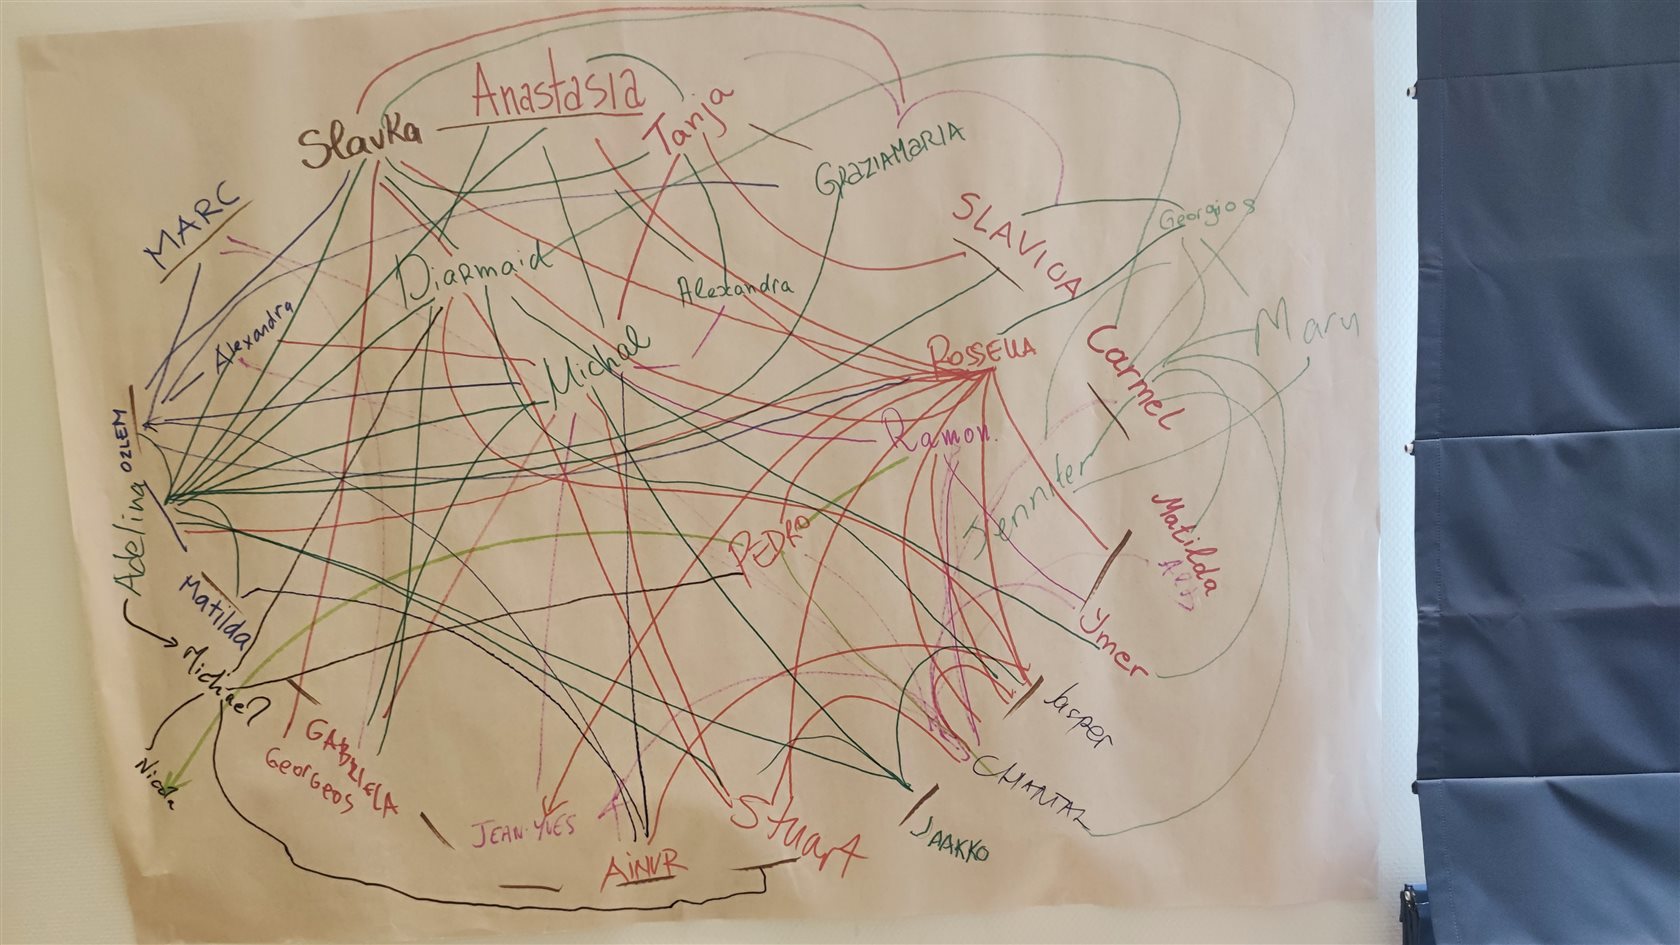 Anastasia
Slavka
Tanja
GRAZIAMARIA
MARC
SLAVICA
Georgios
Diarmaid
Alexandra
Alexandra
Michal
ROSSELLA
Carmel
Mary
Ramon
OZLEM
Adelina
Jennifer
PEDRO
Matilda
Matilda
Ymer
Michael
Jasper
Nicola
GABRIELA
GEORGEOS
CHANTAL
JEAN-YVES
Stuart
JAAKKO
AINUR